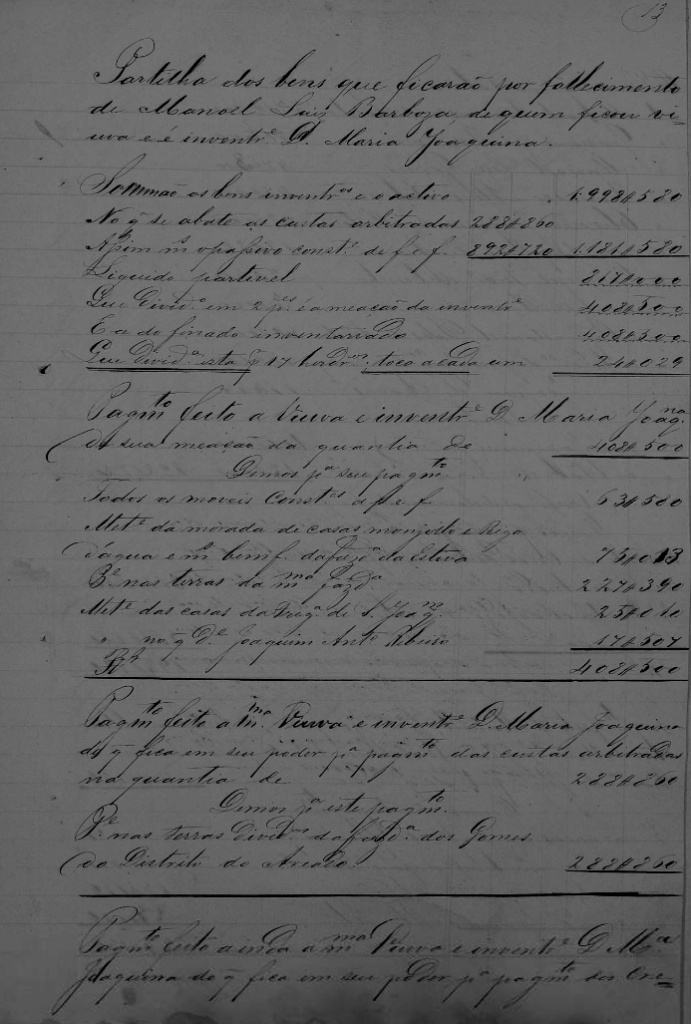 13
Partilha dos bens que ficarão por fallecimento
de Manoel Luiz Barboza, de quem ficou vi=
uva e é inventr.e D. Maria Joaquina.
Sommão os bens inventr.os e o activo 1:998#580
No q̃ se abate as custas arbitradas 288#860
Assim m o passivo const.e de f. e f. 892#720 1:181#580
Liquido partivel 817#000
Que divid.o em 2 p.es é a meação da inventr.e 408#500
E a do finado inventariado 408#500
Que divid.a esta p 17 herdr.os, toca a cada um 24#029
Pagm.to feito a Viuva e inventr.e D. Maria Joaq.na
de sua meação da quantia de 408#500
Demos p.a seu pagm.to
Todos os moveis const.es a f. e f. 63#580
Met.e da morada de casas monjollo e Rego
d'agua e m bemf. da faz.a da Estiva 75#013
P.e nas terras da m.ma faz.da 227#390
Met.e das casas da Freg.a de S. Joaq.m 25#010
" no q̃ D.e Joaquim Ant.o Ribeiro 17#507
408#500
Pagm.to feito a m.ma Viuva e inventr.e D. Maria Joaquina
do q̃ fica em seu poder p.a pagm.to das custas arbitradas
na quantia de 288#860
Demos p.a este pagm.to
P.e nas terras divid.as da fazd.a dos Gomes
do Districto do Areado 288#860
Pagm.to feito ainda a m.ma Viuva e inventr.e D. M.a
Joaquina do q̃ fica em seu poder p.a pagm.to dos Cre=